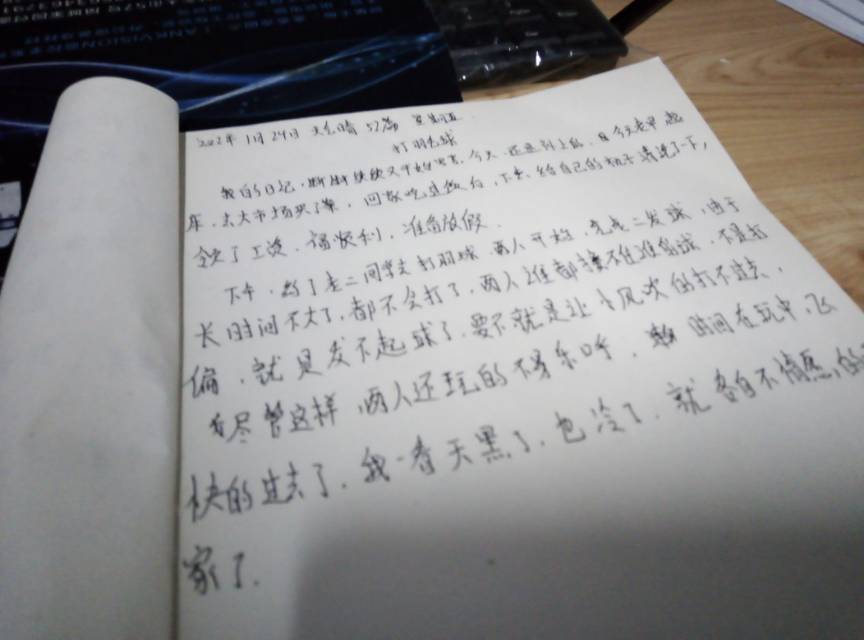 LANKVISION
2022年1月24日 天气晴 57篇 星期五
打羽毛球
我的日记，断断续续又开始写了，今天，还要到上后，今天老早起
床，去大市场买了菜，回家吃过饭后，下来，给自己的柜子清洗了下，
领了工资，福顺利，准备放假．
下午，约了老二同学去打羽球，两人开始，老是二发球，由于
长时间不大了，都不会打了，两人谁都接不住谁的球，不是打
偏，就是发不起球了，要不就是让风吹的打不过去，
尽管这样，两人还玩的不易乐呼，时间在玩中，飞
快的过去了．我一看天黑了．也冷了．就各自不情愿的
家了．